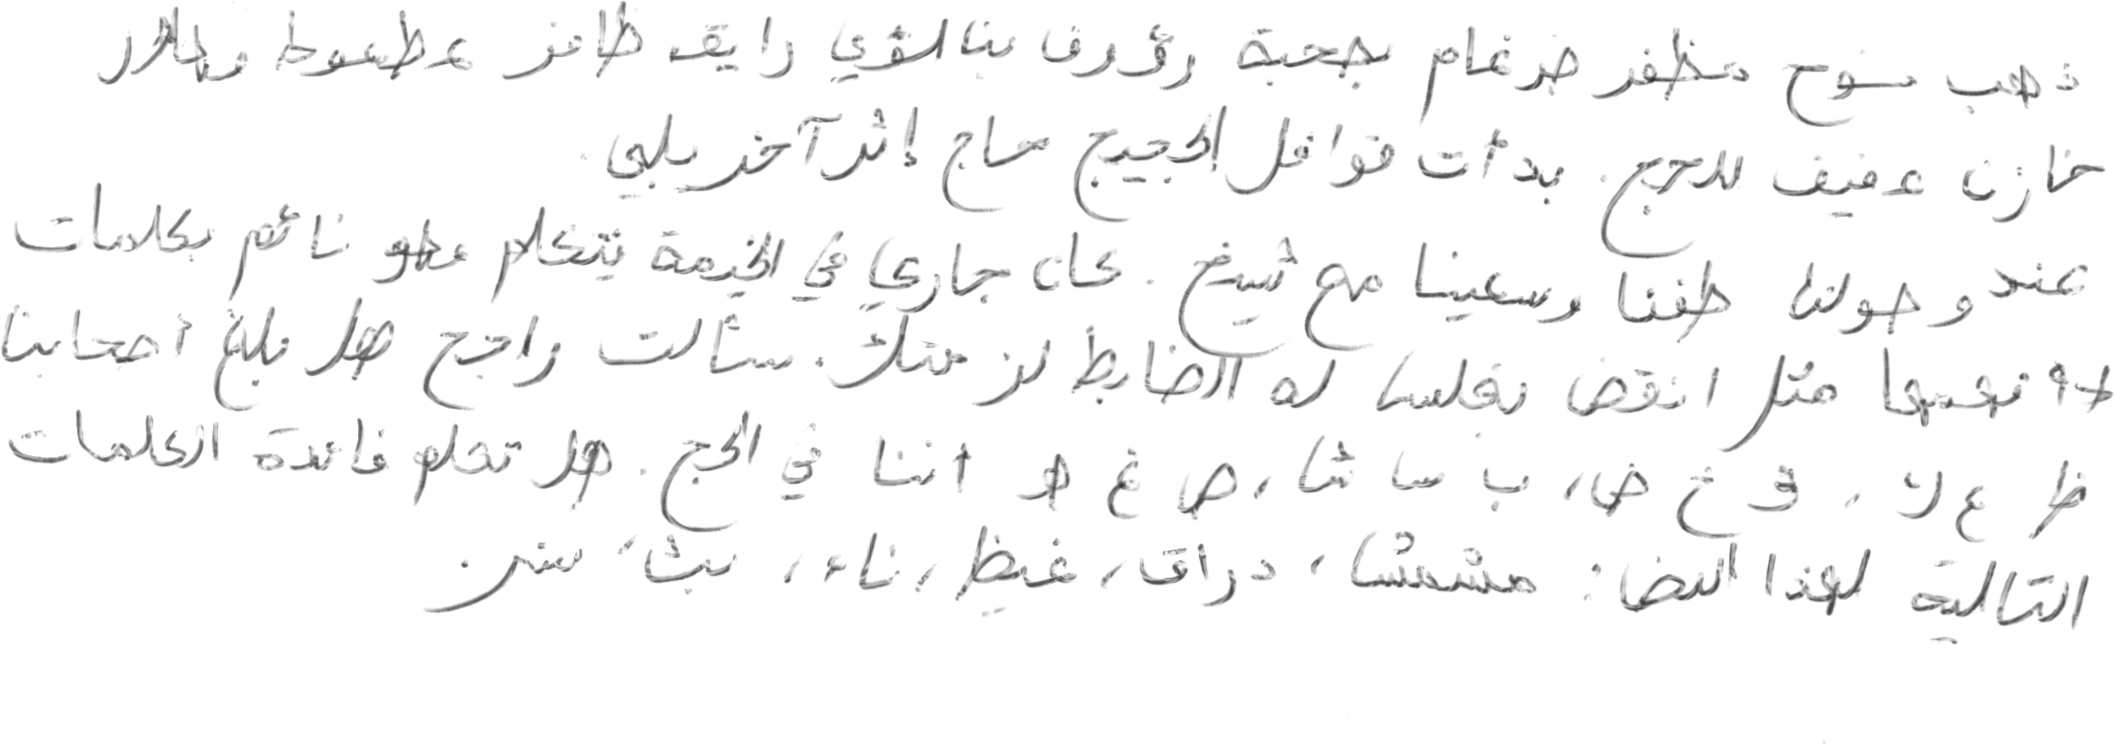 ذهب نوح مظفر ضرغام بصحبة رؤوف بن لؤي رايق ظافر عطعوط وهلال
خازن عفيف للحج. بدأت قوافل الحجيج حاج إثر آخر يلبي.
عند وصولنا طفنا وسعينا مع شيخ. كان جاري في الخيمة يتكلم وهو نائم بكلمات
لا نفهمها مثل انقض بغلس له الضابط لز حثك. سألت راجح هل بلغ أصحابنا
ظ ع لا ، ق خ ض، ب سا شا، ص غ هـ أننا في الحج. هل تعلم فائدة الكلمات
التالية لهذا النص: مشمش، دراق، غيظ، ناء، بث، نسر.